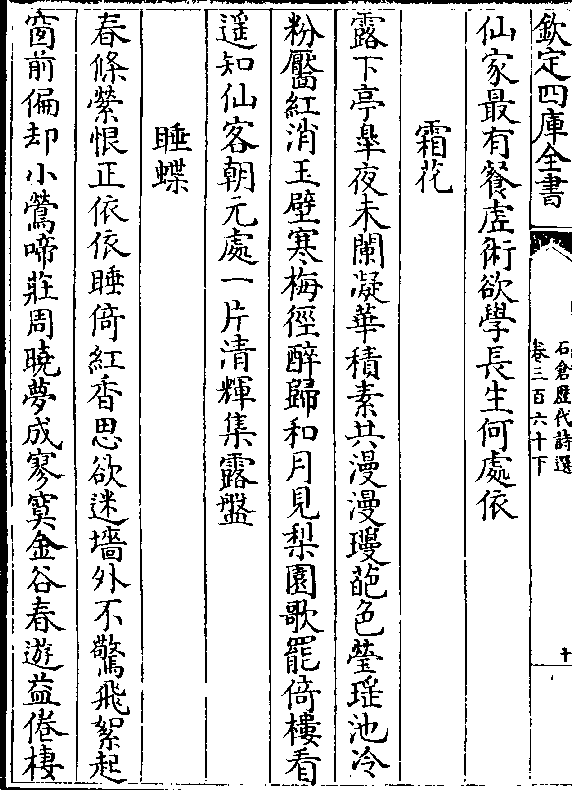 欽定四庫全書
石倉歷代詩選
卷三百六十下
十
仙家最有餐虛術欲學長生何處依
霜花
露下亭臯夜未闌凝華積素共漫漫瓊葩色瑩瑶池冷
粉靨紅消玉壁寒梅徑醉歸和月見梨園歌罷倚樓看
遥知仙客朝元處一片清輝集露盤
睡蝶
春條縈恨正依依睡倚紅香思欲迷墻外不驚飛絮起
窗前偏却小鶯啼莊周曉夢成寥寞金谷春遊益倦棲